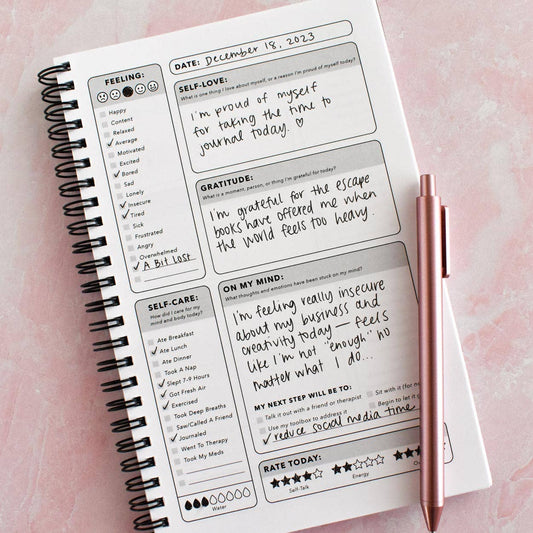 DATE: December 18, 2023
FEELING:
Happy
Content
Relaxed
Average
Motivated
Excited
Bored
Sad
Lonely
Insecure
Tired
Sick
Frustrated
Angry
Overwhelmed
A Bit Lost
SELF-CARE:
How did I care for my
mind and body today?
Ate Breakfast
Ate Lunch
Ate Dinner
Took A Nap
Slept 7-9 Hours
Got Fresh Air
Exercised
Took Deep Breaths
Saw/Called A Friend
Journaled
Went To Therapy
Took My Meds
Water
SELF-LOVE:
What is one thing I love about myself, or a reason I'm proud of myself today?
I'm proud of myself
for taking the time to
journal today. ♡
GRATITUDE:
What is a moment, person, or thing I'm grateful for today?
I'm grateful for the escape
books have offered me when
the world feels too heavy.
ON MY MIND:
What thoughts and emotions have been stuck on my mind?
I'm feeling really insecure
about my business and
creativity today — feels
like I'm not "enough" no
matter what I do...
MY NEXT STEP WILL BE TO:
Talk it out with a friend or therapist
Sit with it (for
Use my toolbox to address it
Begin to let it
reduce social media time
RATE TODAY:
Self-Talk
Energy